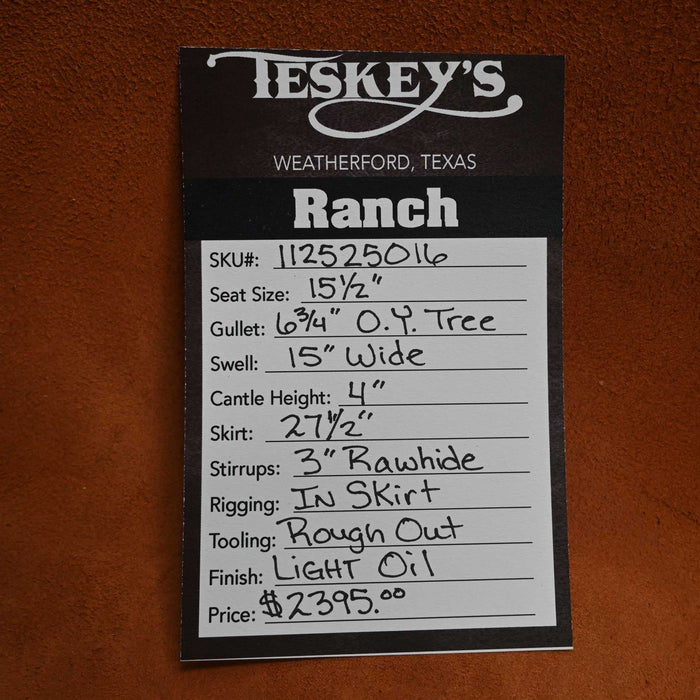 TESKEY'S
WEATHERFORD, TEXAS
Ranch
SKU#: 112525016
Seat Size: 15½"
Gullet: 6¾" O.Y. Tree
Swell: 15" Wide
Cantle Height: 4"
Skirt: 27½"
Stirrups: 3" Rawhide
Rigging: IN SKirt
Tooling: Rough Out
Finish: LIGHT Oil
Price: $2395.00